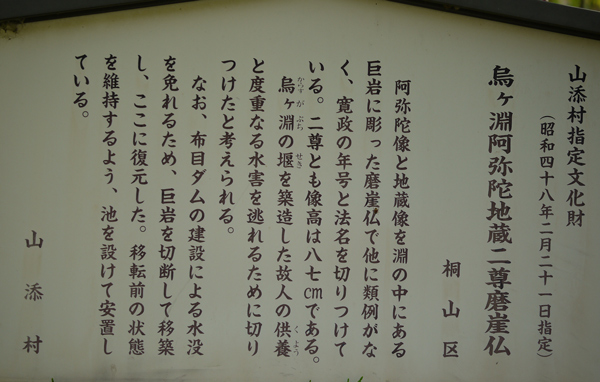 山添村指定文化財
（昭和四十八年二月二十一日指定）
烏ヶ淵阿弥陀地蔵二尊磨崖仏
桐山区
阿弥陀像と地蔵像を淵の中にある
巨岩に彫った磨崖仏で他に類例がな
く、寛政の年号と法名を切りつけて
いる。二尊とも像高は八七㎝である。
烏ヶ淵の堰を築造した故人の供養
からす が ぶち せき くよう
と度重なる水害を逃れるために切り
つけたと考えられる。
なお、布目ダムの建設による水没
を免れるため、巨岩を切断して移築
し、ここに復元した。移転前の状態
を維持するよう、池を設けて安置し
ている。
山添村